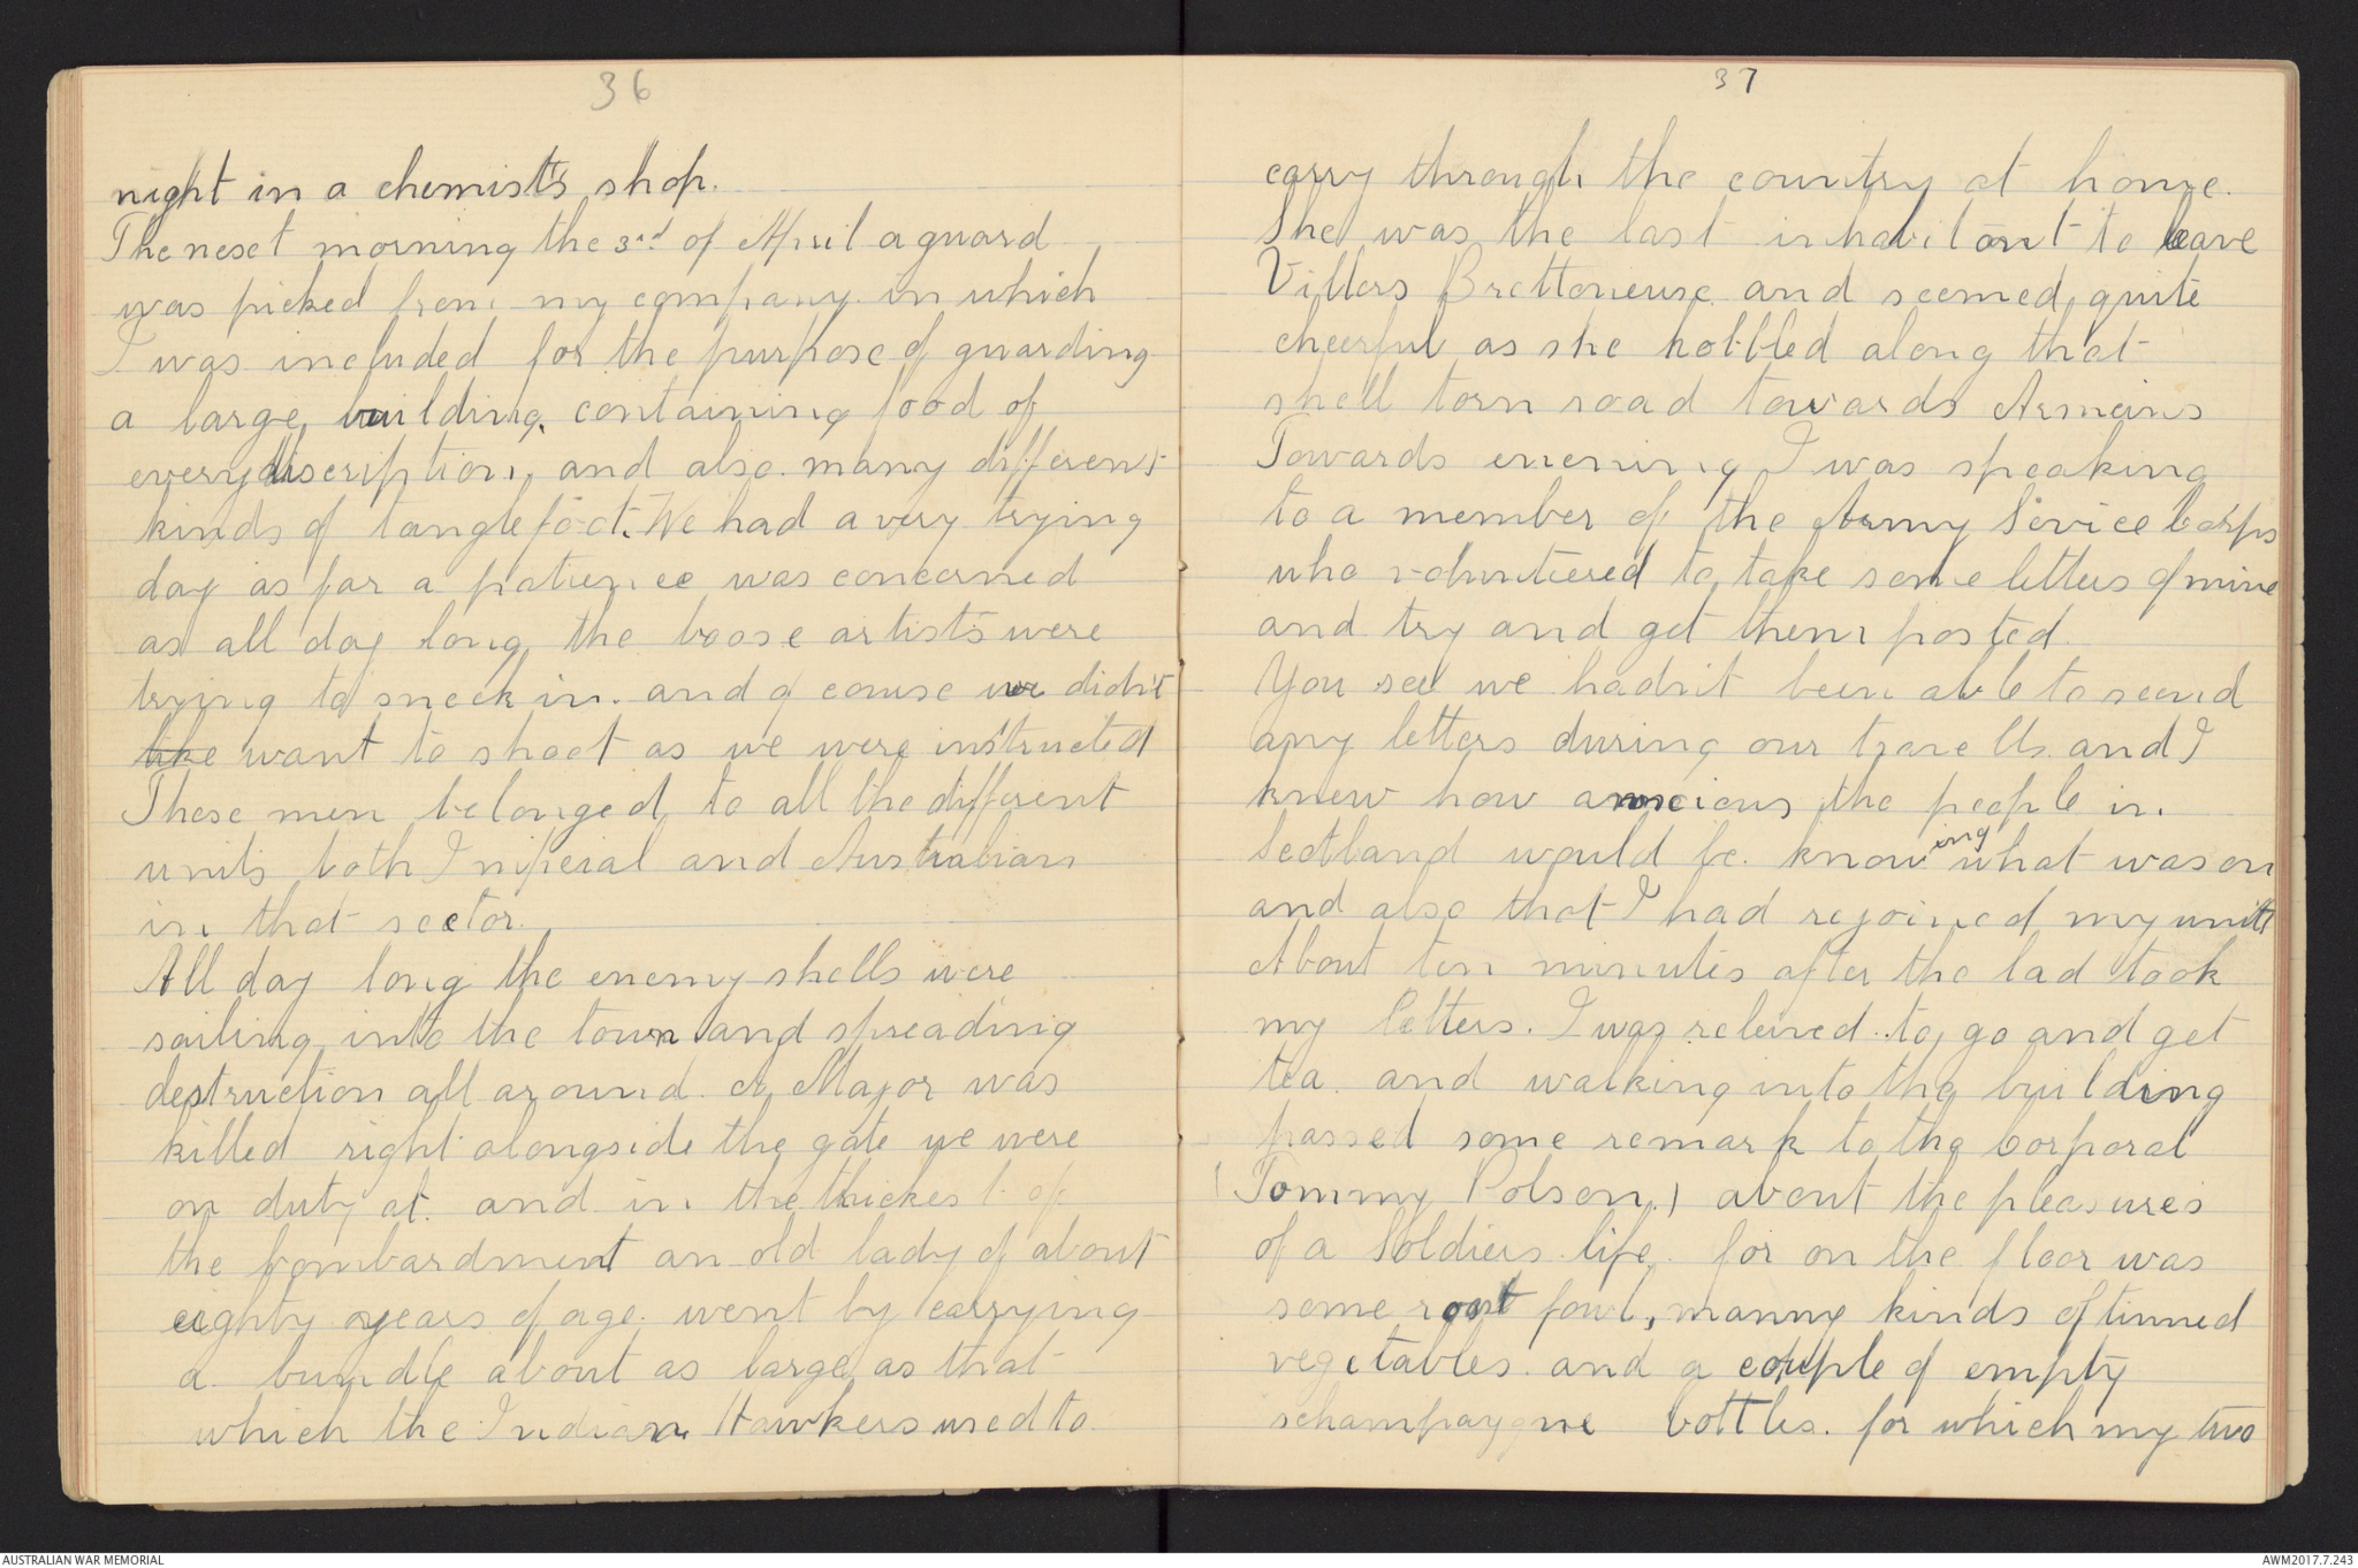 36
night in a chemist's shop.
The nesct morning the 3rd of April a guard
was picked from my company in which
I was included for the purpose of guarding
a large building, containing food of
every discription, and also many different
kinds of tanglefoot. We had a very trying
day as far a patience was concerned
as all day long the boose artists were
trying to sneek in. and of couse we didn't
like want to shoot as we were instructed
These men belonged to all the different
units both Imperial and Australian
in that sector.
All day long the enemy shells were
sailing into the town and spreading
destruction all around. A Major was
killed right alongside the gate we were
on duty at. and in the thickest of
the bombardment an old lady of about
eighty years of age. went by carrying
a bundle about as large as that
which the Indian Hawkers used to.
37
carry through the country at home.
She was the last inhabitant to leave
Villers Brettoneuse and seemed quite
cheerful as she hobbled along that
shell torn road towards Armeins
Towards evening I was speaking
to a member of the Army Service Corps
who volunteered to take some letters of mine
and try and get them posted.
You see we hadn't been able to seend
any letters during our travells. and I
knew how anxcious the people in
Scotland would be. knowing what was on
and also that I had rejoined my unit
About ten minutes after the lad took
my letters. I was releived to go and get
tea. and walking into the building
passed some remark to the Corporal
(Tommy Polson,) about the pleasures
of a Soldiers life. for on the floor was
some roast fowl, manny kinds of tinned
vegetables. and a couple of empty
schampaygne bottles. for which my two
AUSTRALIAN WAR MEMORIAL
AWM2017.7.243